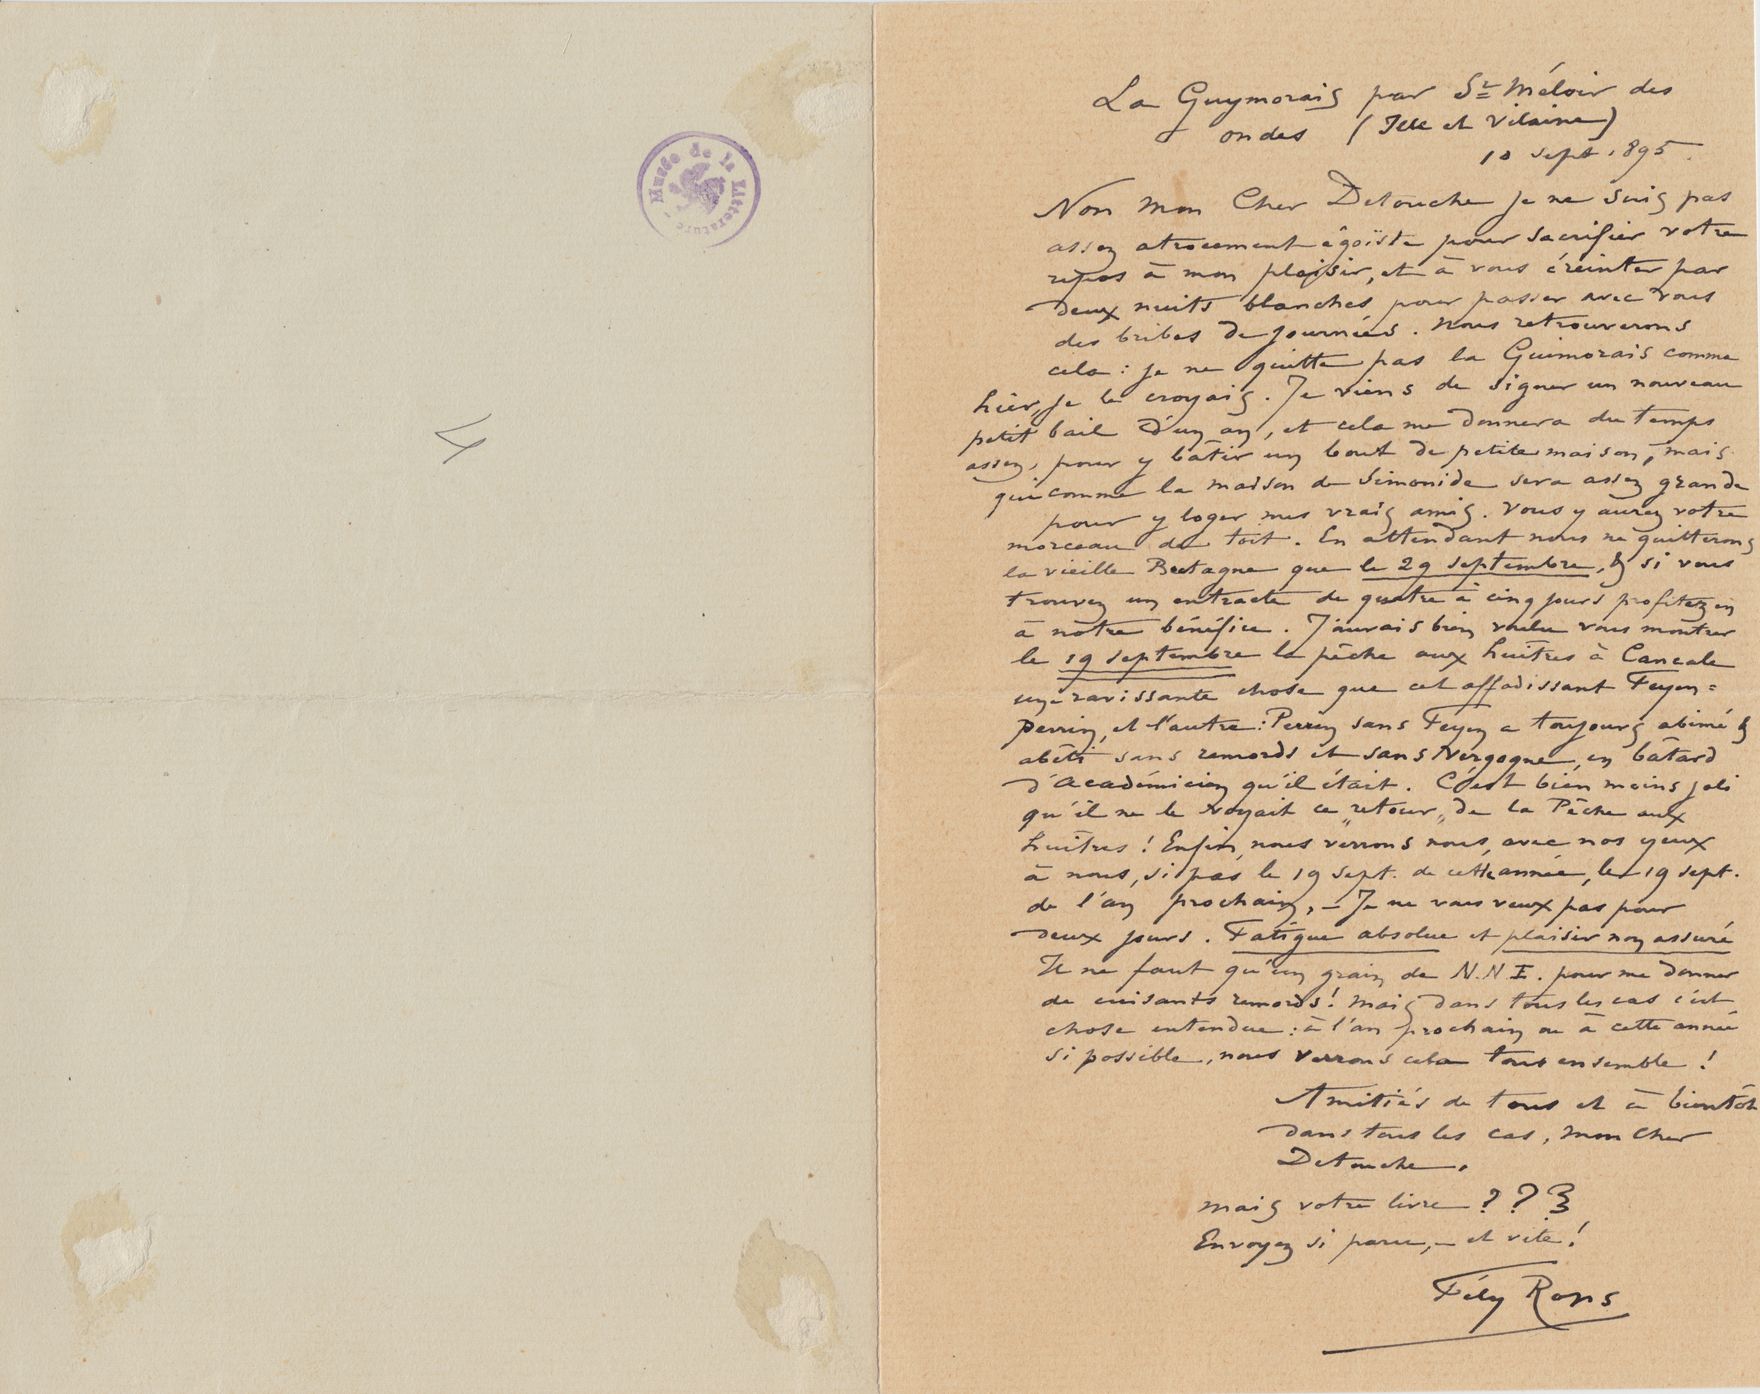 Musée de la Littérature
4
La Guymorais par St Méloir des
ondes (Ille et Vilaine)
10 sept 1895.
Non Mon Cher Detouche je ne suis pas
assez atrocement égoïste pour sacrifier votre
repos à mon plaisir, et à vous éreinter par
deux nuits blanches pour passer avec vous
des bribes de journées. Nous retrouverons
cela : je ne quitte pas la Guimorais comme
hier, je le croyais. Je viens de signer un nouveau
petit bail d'un an, et cela me donnera du temps
assez, pour y bâtir un bout de petite maison, mais
qui comme la maison de Simonide sera assez grande
pour y loger mes vrais amis. Vous y aurez votre
morceau de toit. En attendant nous ne quitterons
la vieille Bretagne que le 29 septembre, & si vous
trouvez un entracte de quatre à cinq jours profitez en
à notre bénéfice. J'aurais bien voulu vous montrer
le 19 septembre la pêche aux huîtres à Cancale
une ravissante chose que cet affadissant Feyen=
Perrin, et l'autre : Perrin sans Feyen a toujours abimé &
abêti sans remords et sans vergogne, en bâtard
d'académicien qu'il était. C'est bien moins joli
qu'il ne le voyait ce "retour" de la Pêche aux
huîtres ! Enfin, nous verrons nous, avec nos yeux
à nous, si pas le 19 sept. de cette année, le 19 sept.
de l'an prochain, – Je ne vous veux pas pour
deux jours. Fatigue absolue et plaisir non assuré
Il ne faut qu'un grain de N.N.E. pour me donner
de cuisants remords ! Mais dans tous les cas c'est
chose entendue : à l'an prochain ou à cette année
si possible, nous verrons cela tous ensemble !
Amitiés de tous et à bientôt
dans tous les cas, mon cher
Detouche.
Mais votre livre ? ? ?
Envoyez si paru, – et vite !
Fély Rops